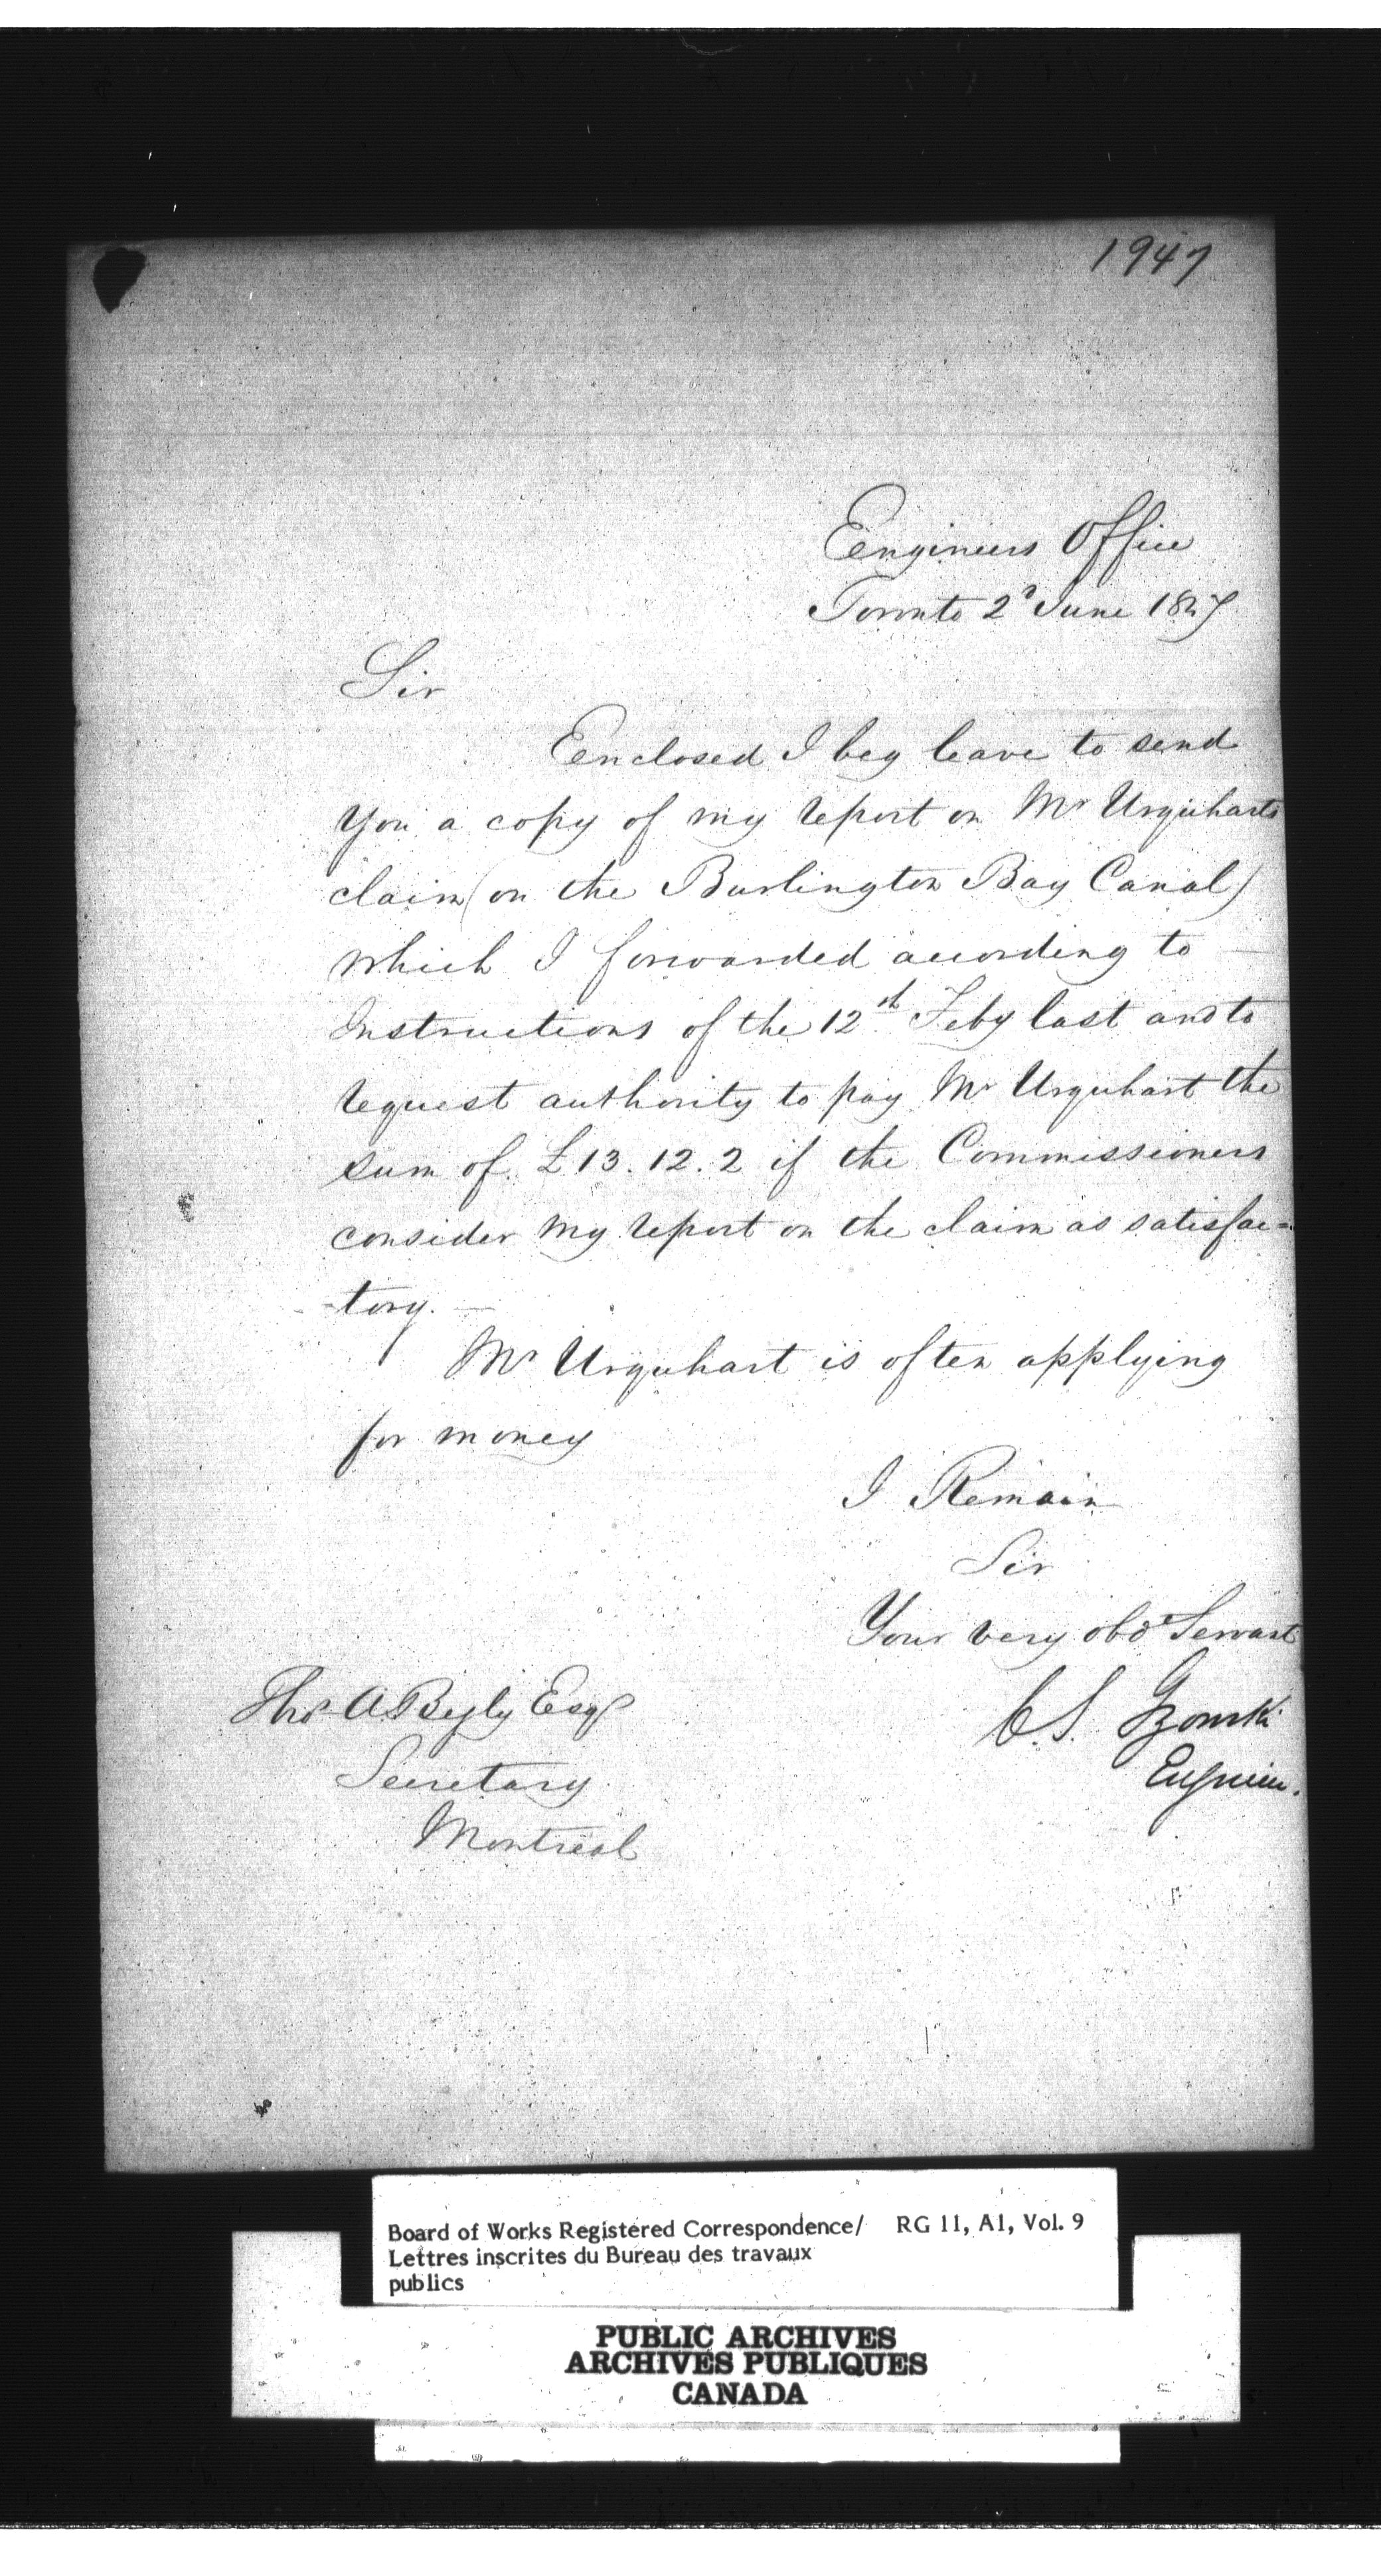 1947
Engineers Office
Toronto 2d June 1847
Sir
Enclosed I beg leave to send
you a copy of my report on Mr Urquharts
claim (on the Burlington Bay Canal)
which I forwarded according to
Instructions of the 12th Feby last and to
request authority to pay Mr Urquhart the
sum of £13.12.2 if the Commissioners
consider my report on the claim as satisfac=
-tory. —
Mr Urquhart is often applying
for money
I Remain
Sir
Your very obdt Servant
C.S. Gzowski
Engineer.
Thos A Begly Esqr
Secretary
Montreal
Board of Works Registered Correspondence/ RG 11, A1, Vol. 9
Lettres inscrites du Bureau des travaux
publics
PUBLIC ARCHIVES
ARCHIVES PUBLIQUES
CANADA